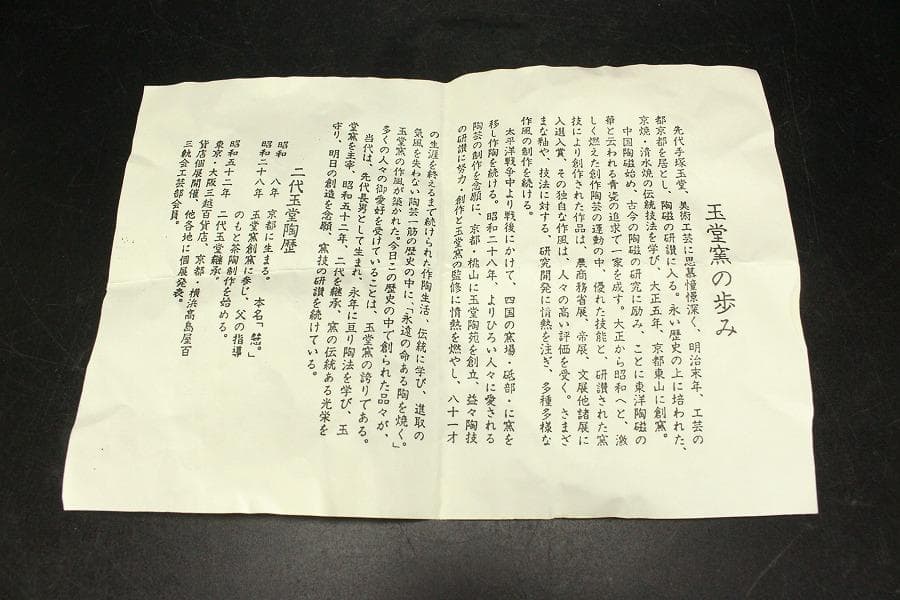 玉堂窯の歩み
先代手塚玉堂、美術工芸に思慕憧憬深く、明治末年、工芸の
都京都を居とし、陶磁の研讃に入る。永い歴史の上に培われた、
京焼・清水焼の伝統技法を学び、大正五年、京都東山に創窯。
中国陶磁始め、古今の陶磁の研究に励み、ことに東洋陶磁の
華と云われる青瓷の追求で一家を成す。大正から昭和へと、激
しく燃えた創作陶芸の運動の中、優れた技能と、研讃された窯
技により創作された作品は、農商務省展、帝展、文展他諸展に
入選入賞、その独自な作風は、人々の高い評価を受く。さまざ
まな釉や、技法に対する、研究開発に情熱を注ぎ、多種多様な
作風の制作を続ける。
太平洋戦争中より戦後にかけて、四国の窯場・砥部・に窯を
移し作陶を続ける。昭和二十八年、よりひろい人々に愛される
陶芸の制作を念願に、京都・桃山に玉堂陶苑を創立、益々陶技
の研讃に努力・創作と玉堂窯の監修に情熱を燃やし、八十一才
の生涯を終えるまで続けられた作陶生活、伝統に学び、進取の
気風を失わない陶芸一筋の歴史の中に、「永遠の命ある陶を焼く。」
玉堂窯の作風が築かれた。今日この歴史の中で創られた品々が、
多くの人々の御愛好を受けていることは、玉堂窯の誇りである。
当代は、先代長男として生まれ、永年に亘り陶法を学び、玉
堂窯を主宰、昭和五十二年、二代を継承、窯の伝統ある光栄を
守り、明日の創造を念願、窯技の研讃を続けている。
二代玉堂陶歴
昭和　八年　京都に生まる。　本名「　。」
昭和二十八年　玉堂窯創窯に参じ、父の指導
のもと茶陶制作を始める。
昭和五十二年　二代玉堂継承。
東京・大阪三越百貨店、京都・横浜高島屋百
貨店個展開催、他各地に個展発表。
三軌会工芸部会員。